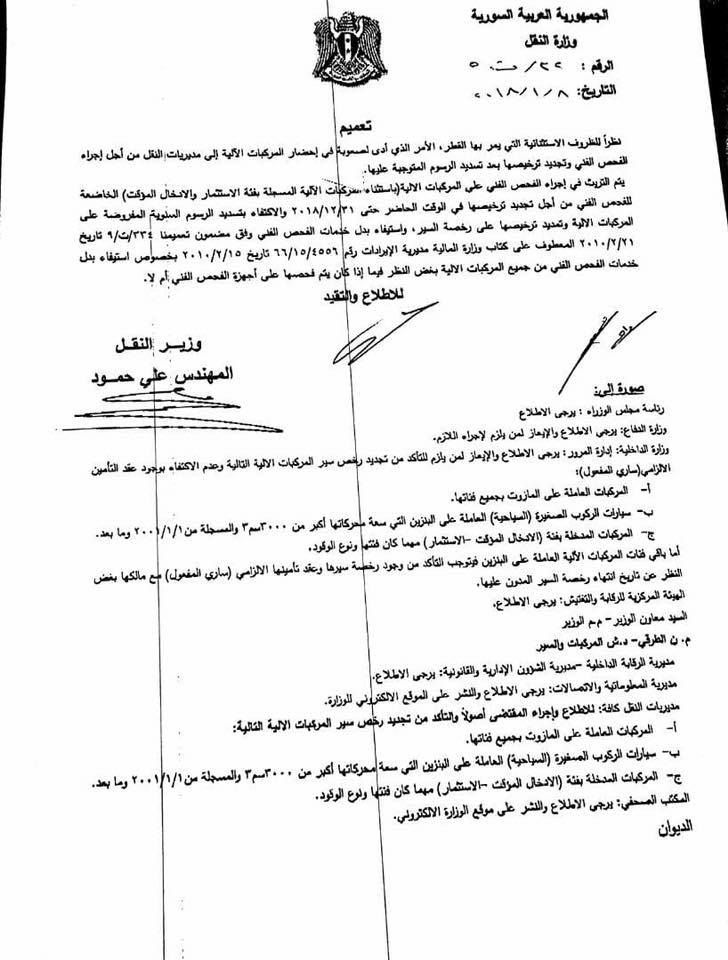 الجمهورية العربية السورية
وزارة النقل
الرقم: ٢٢/ت ٥
التاريخ: ٢٠١٨/١/٨
تعميم
نظراً للظروف الاستثنائية التي يمر بها القطر، الأمر الذي أدى لصعوبة في إحضار المركبات الآلية إلى مديريات النقل من أجل إجراء
الفحص الفني وتجديد ترخيصها بعد تسديد الرسوم المتوجبة عليها.
يتم التريث في إجراء الفحص الفني على المركبات الالية(باستثناء مركبات الآلية المسجلة بفئة الاستثمار والادخال المؤقت) الخاضعة
للفحص الفني من أجل تجديد ترخيصها في الوقت الحاضر حتى ٢٠١٨/١٢/٣١ والاكتفاء بتسديد الرسوم السنوية المفروضة على
المركبات الالية وتمديد ترخيصها على رخصة السير، واستيفاء بدل خدمات الفحص الفني وفق مضمون تعميمنا ٩/ت/٣٣٤ تاريخ
٢٠١٠/٢/٢١ المعطوف على كتاب وزارة المالية مديرية الإيرادات رقم ٦٦/١٥/٤٥٥٦ تاريخ ٢٠١٠/٢/١٥ بخصوص استيفاء بدل
خدمات الفحص الفني من جميع المركبات الالية بغض النظر فيما إذا كان يتم فحصها على أجهزة الفحص الفني أم لا.
للاطلاع والتقيد
وزيـر النقل
المهندس علي حمود
صورة إلى:
رئاسة مجلس الوزراء : يرجى الاطلاع
وزارة الدفاع: يرجى الاطلاع والإيعاز لمن يلزم لإجراء اللازم.
وزارة الداخلية: إدارة المرور: يرجى الاطلاع والإيعاز لمن يلزم للتأكد من تجديد رخص سير المركبات الالية التالية وعدم الاكتفاء بوجود عقد التأمين
الالزامي(ساري المفعول):
أ- المركبات العاملة على المازوت بجميع فئاتها.
ب- سيارات الركوب الصغيرة (السياحية) العاملة على البنزين التي سعة محركاتها أكبر من ٣٠٠٠سم٣ والمسجلة من٢٠٠١/١/١ وما بعد.
ج- المركبات المدخلة بفئة (الادخال المؤقت –الاستثمار) مهما كان فئتها ونوع الوقود.
أما باقي فئات المركبات الآلية العاملة على البنزين فيتوجب التأكد من وجود رخصة سيرها وعقد تأمينها الالزامي (ساري المفعول) مع مالكها بغض
النظر عن تاريخ انتهاء رخصة السير المدون عليها.
الهيئة المركزية للرقابة والتفتيش: يرجى الاطلاع.
السيد معاون الوزير – م.م الوزير
م. ن الطرقي– د.ش المركبات والسير
مديرية الرقابة الداخلية –مديرية الشؤون الإدارية والقانونية: يرجى الاطلاع.
مديرية المعلوماتية والاتصالات: يرجى الاطلاع والنشر على الموقع الالكتروني للوزارة.
مديريات النقل كافة: للاطلاع وإجراء المقتضى أصولاً والتأكد من تجديد رخص سير المركبات الالية التالية:
أ- المركبات العاملة على المازوت بجميع فئاتها.
ب- سيارات الركوب الصغيرة (السياحية) العاملة على البنزين التي سعة محركاتها أكبر من ٣٠٠٠سم٣ والمسجلة من٢٠٠١/١/١ وما بعد.
ج- المركبات المدخلة بفئة (الادخال المؤقت –الاستثمار) مهما كان فئتها ونوع الوقود.
المكتب الصحفي: يرجى الاطلاع والنشر على موقع الوزارة الالكتروني.
الديوان